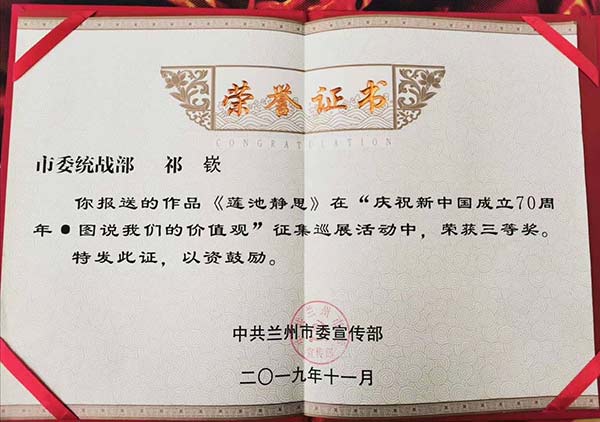 荣誉证书
CONGRATULATION
市委统战部 祁 钦
你报送的作品《莲池静思》在“庆祝新中国成立70周
年●图说我们的价值观”征集巡展活动中，荣获三等奖。
特发此证，以资鼓励。
中共兰州市委宣传部
二〇一九年十一月